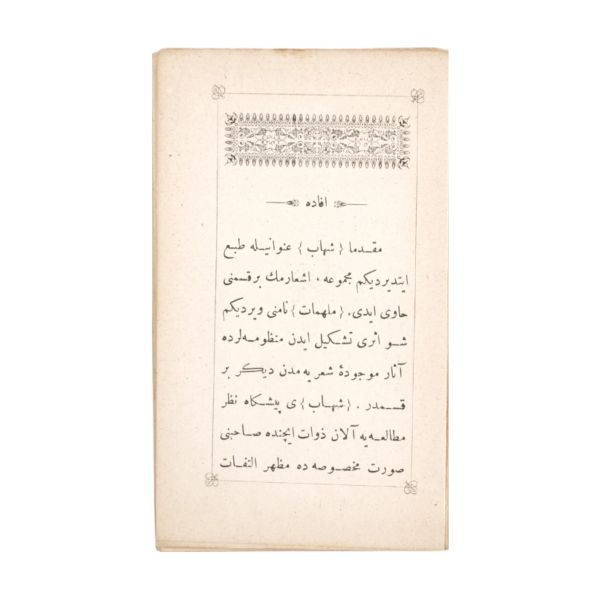 افاده
مقدما { شهاب } عنوانیله طبع
ایتدیردیكم مجموعه ، اشعارمك برقسمنی
حاوی ایدی. { ملهمات } نامنی ویردیكم
شو اثری تشكیل ایدن منظومه‌لرده
آثار موجودهٔ شعریه‌مدن دیكر بر
قسمدر . { شهاب } ی پیشكاه نظر
مطالعه‌یه آلان ذوات ایچنده صاحبنی
صورت مخصوصه‌ده مظهر التفات